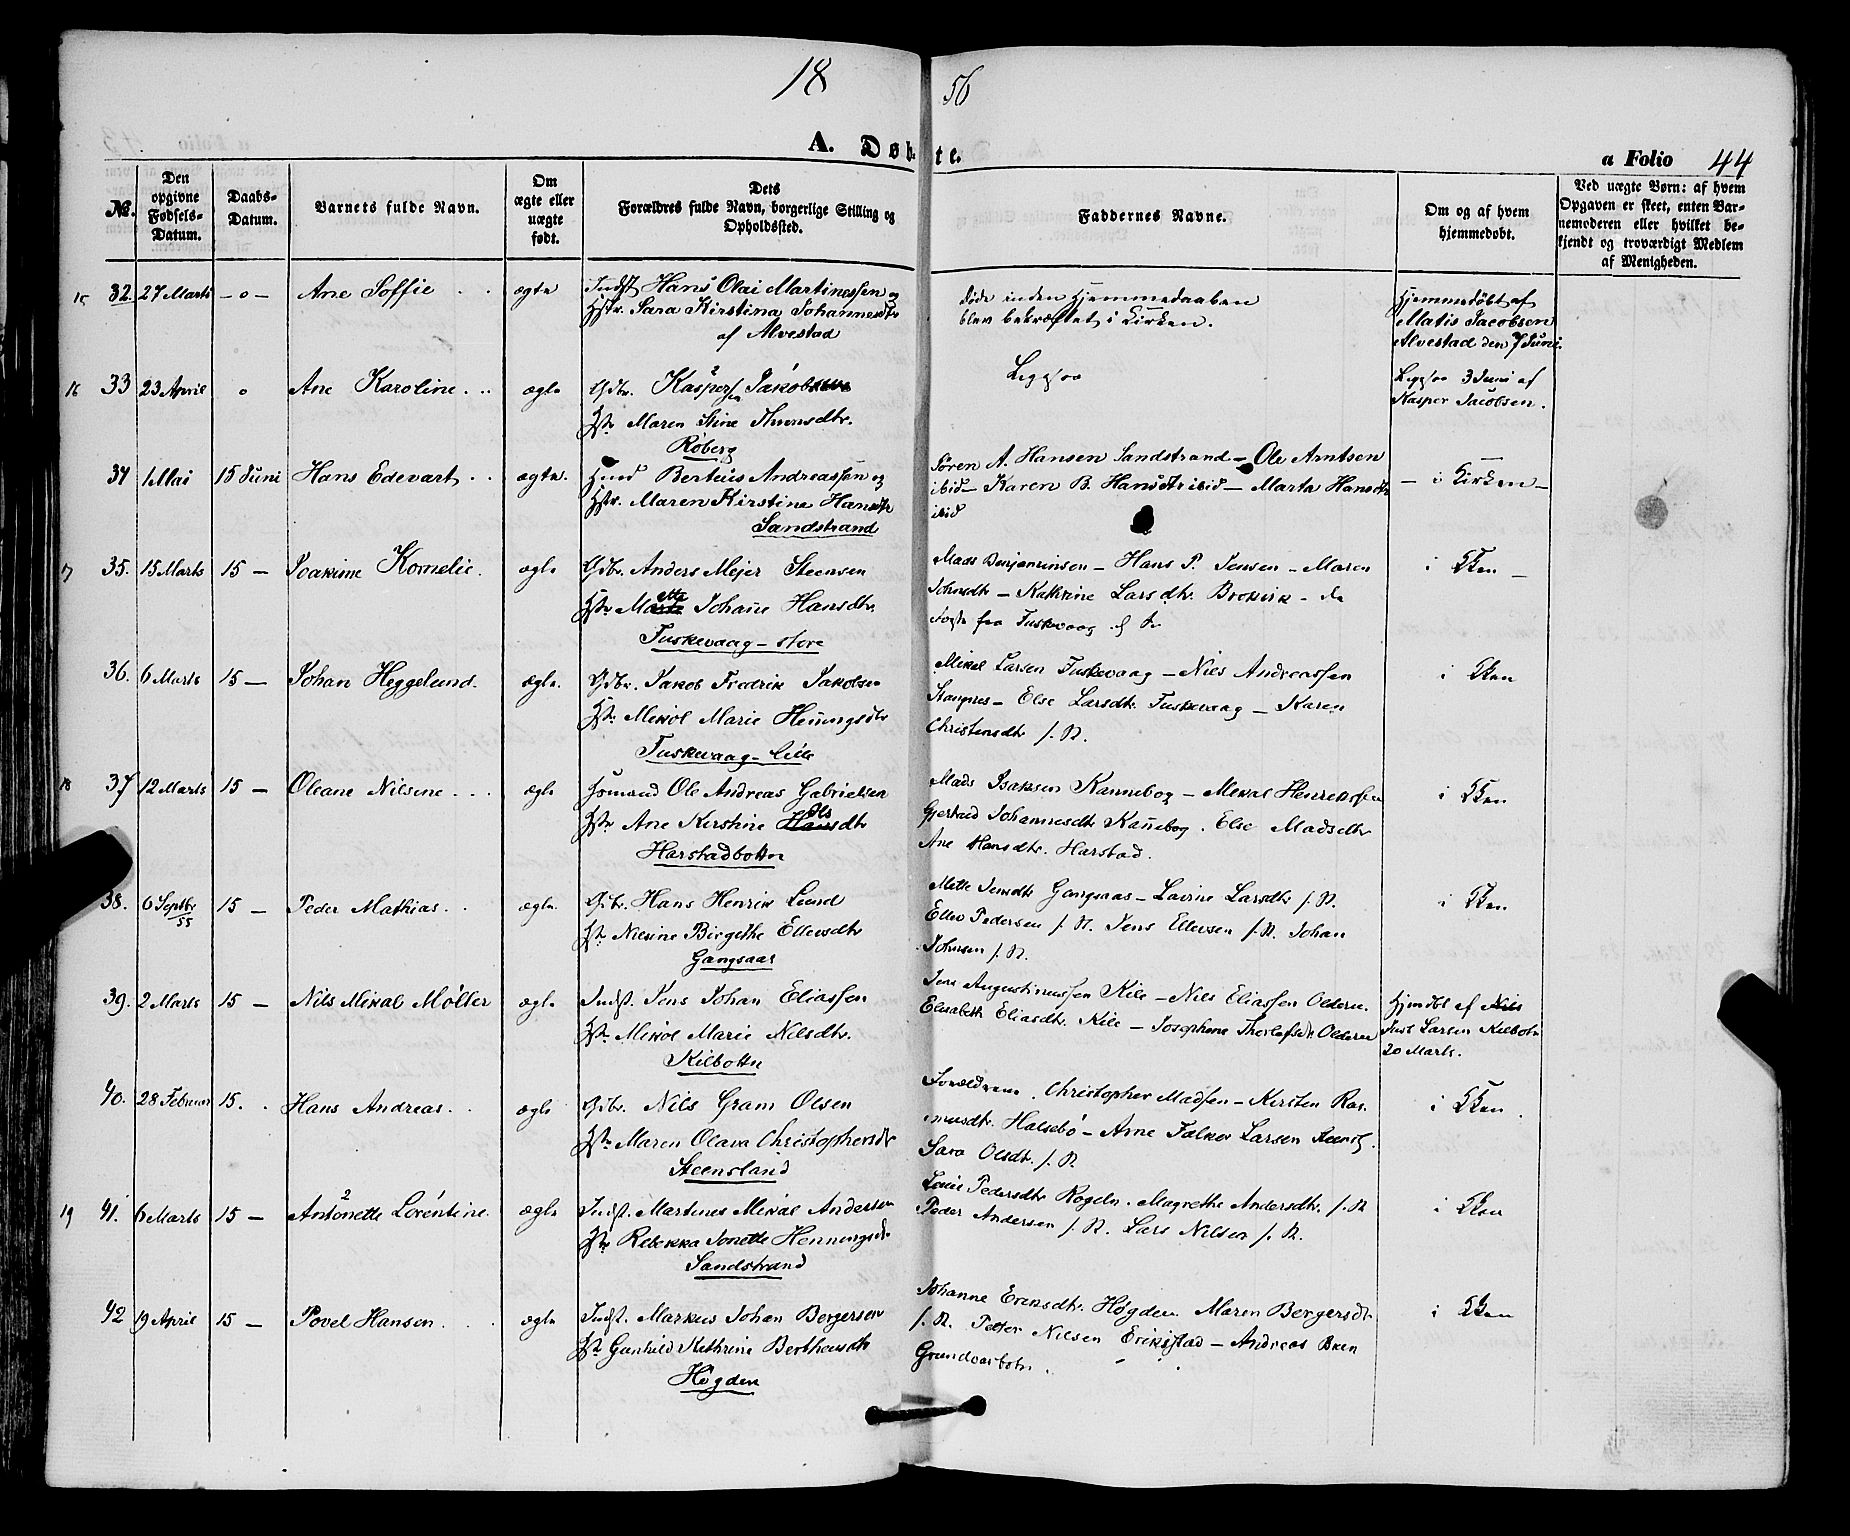 18 56
A. Døbte.
a Folio 44
No.
Den opgivne Fødsels-Datum.
Daabs-Datum.
Barnets fulde Navn.
Om ægte eller uægte født.
Dets Forældres fulde Navn, borgerlige Stilling og Opholdssted.
Faddernes Navne.
Om og af hvem hjemmedøbt.
Ved uægte Børn: af hvem Opgaven er skeet, enten Barnemoderen eller hvilket bekjendt og troværdigt Medlem af Menigheden.
15 32. 27 Marts - o - Ane Soffie . . ægte
Indst Hans Olai Martinessen og
Hstr. Sara Kirstina Johannesdtr
af Alvestad
døde inden Hjemmedaaben
blev bekræftet i Kirken.
Hjemmedöbt af
Matis Jacobsen
Alvestad den 7 Juni.
16 33 23 April o Ane Karoline . .. ægte
Gdbr. Kasper Jakobsen
Hstr Maren Stine Thomsdtr.
Röberg
Ligesoo
Ligesoo 3 Juni af
Kasper Jacobsen.
34 1 Mai 15 Juni Hans Edevart . . ægte.
Hmd Berteus Andreassen og
Hstr. Maren Kirstine Hansdtr
Sandstrand
Sören A. Hansen Sandstrand - Ole Arntsen
ibid - Karen B. Hansdtr ibid - Marta Hansdtr
ibid
- i Kirken -
17 35. 15 Marts 15 - Joakime Kornelie. ægte
Gdbr. Anders Mejer Steensen
Hstr Mette Johane Hansdtr.
Tuskevaag - store
Mads Benjaminsen - Hans P. Jensen - Maren
Johnsdtr - Kathrine Larsdtr. Brokvik - de
i Kken -
36. 6 Marts 15 - Johan Heggelund. ægte.
Gdbr. Jakob Fredrik Jakobsen
Hstr. Mikol Marie Henningsdtr
Tuskevaag - lille
Mikal Larsen Tuskevaag - Nils Andreassen
Stangnes - Else Larsdtr. Tuskevaag - Karen
Christensdtr s. St.
i Kken
18 37 12 Marts 15 - Oleane Nilsine . . . ægte
Jomand Ole Andreas Gabrielsen
Hstr Ane Kirstine Olsdtr
Harstadbotten
Mads Isaksen Kannebog - Mikal Henriksen
Gjertrud Johannesdtr Kanebog. Else Madsdtr
Ane Hansdtr. Harstad.
i Kken
38. 6 Septbr 55 15 - Peder Mathias. . ægte.
Gdbr. Hans Henrik Lund
Hstr Nilsine Birgethe Ellevsdtr
Gangsaas
Mette Jensdtr Gangsaas - Lavine Larsdtr s. St.
Ellev Pedersen s. St. Jens Ellevsen s. St. Johan
Johnsen s. St.
i Kken
39. 2 Marts 15 - Nils Mikal Möller ægte
Indst. Jens Johan Eliassen
Hstr. Mikol Marie Nilsdtr.
Kilbotten
Jens Augustinussen Kile - Nils Eliassen Olderen.
Elisabeth Eliasdtr. Kile - Josephine Thorlefsdtr. Olderen
Hjmdbt af Nils
Just Larsen Kilbotn
20 Marts.
40. 28 Februar 15. . Hans Andreas. . ægte
Gdbr. Nils Gram Olsen
Hstr. Maren Olava Christophersdtr
Steensland
Forældrene. Christopher Madsen - Kirsten Ras-
musdtr. Halsebö - Arne Falkor Larsen
Sara Olsdtr. s. St.
i Kken .
19 41. 6 Marts 15 - Antonette Lorentine. ægte
Indst. Martines Mikal Andersen
Hstr Rebekka Jonette Henningsdtr
Sandstrand
Pedersdtr Rogeln. Magrethe Andersdtr. s. St
Peder Andersen s. St. Lars Nilsen s. St.
i Kken
42 19 April 15 - Povel Hansen. . . ægte
Indst. Markus Johan Bergersen
Hstr Gunhild Kathrine Berthausdtr
Högden
Johanne Eriksdtr. Högden Maren Bergersdtr
s. St. Petter Nilsen Erikstad - Andreas Been
Grundvarbotn.
i Kken